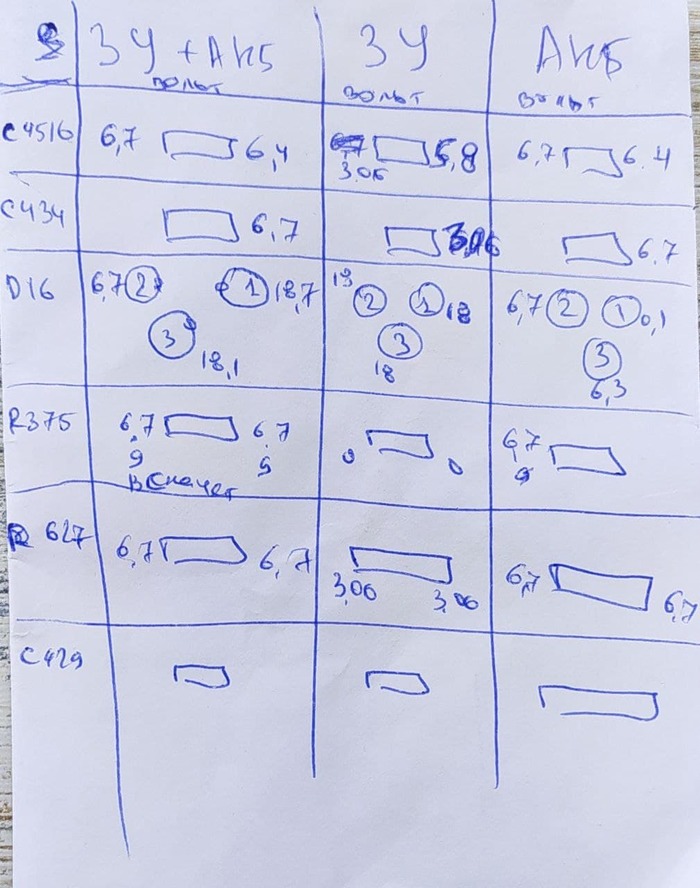 ЗУ + АКБ ЗУ АКБ
вольт вольт вольт
C4516 6,7 6,4 3,06 5,8 6,7 6.4
C434 6,7 3,06 6,7
D16 6,7 2 1 18,7 18 2 1 18 6,7 2 1 0,1
3 18,1 3 18 3 6,3
R375 6,7 6,7 6,7
9 9 0 0 9
R 627 6,7 6,7 3,06 3,06 6,7 6,7
C429